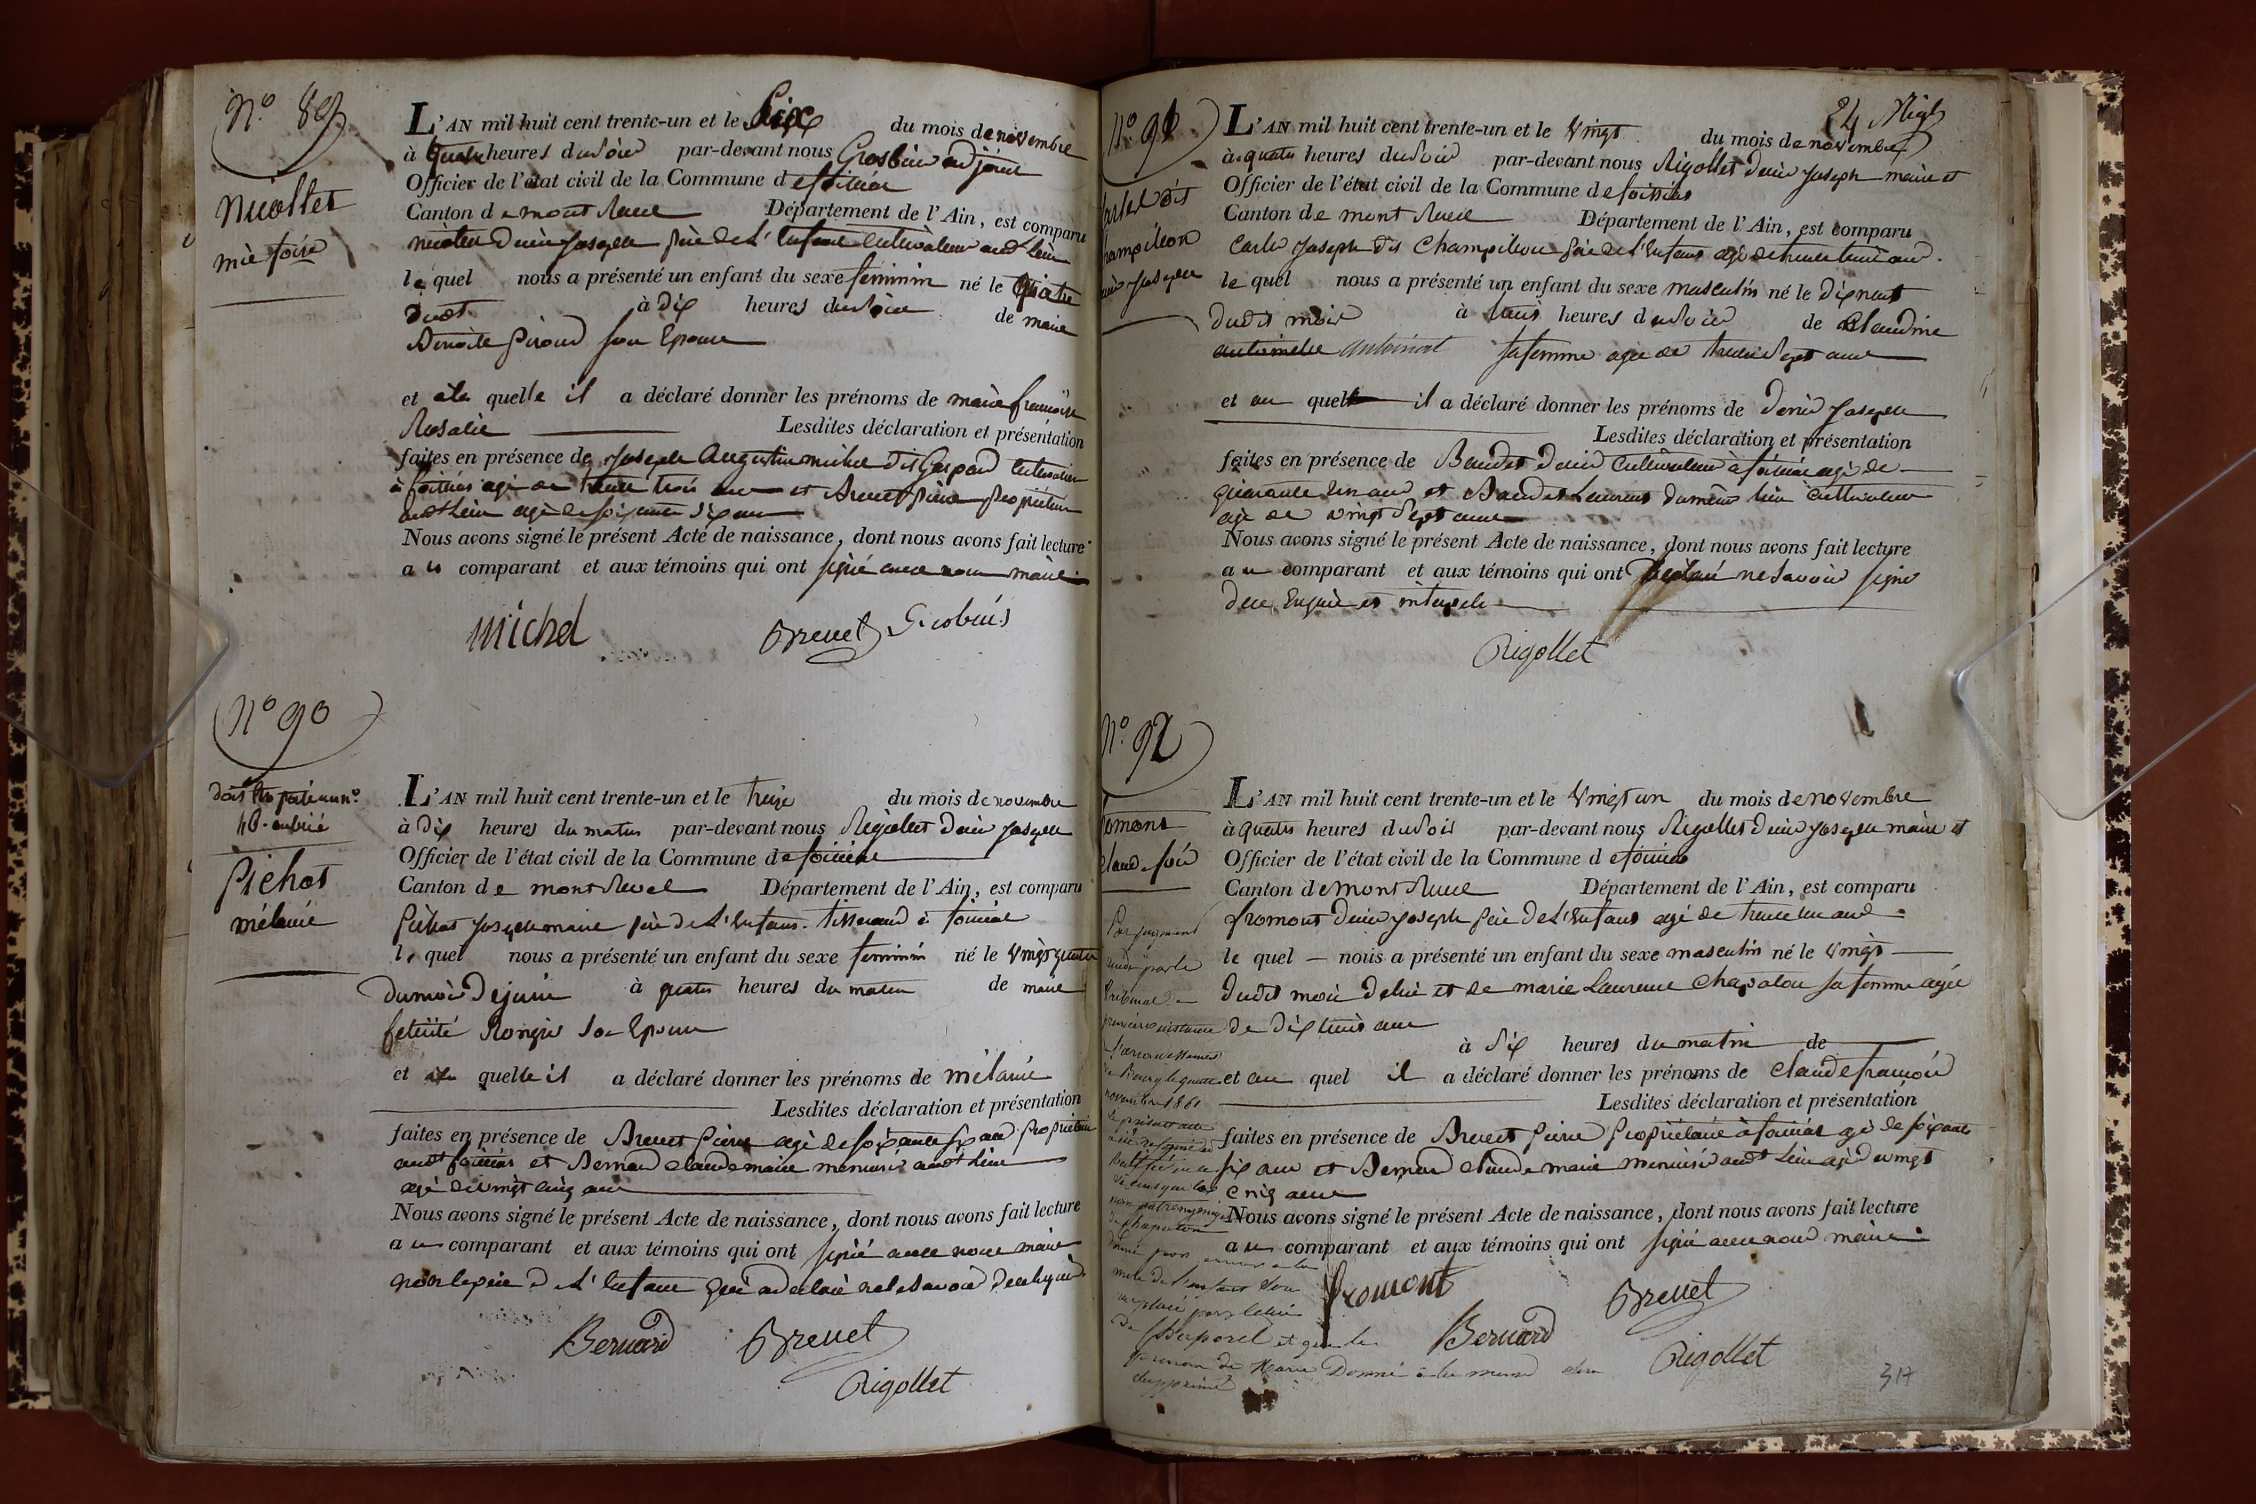 N.º 89
Nicollet
L'AN mil huit cent trente-un et le Six du mois de novembre
à quatre heures du soir par-devant nous adjoint
Officier de l'état civil de la Commune de foissiat
Canton de montrevel Département de l'Ain, est comparu
nicollet denis Joseph père de L'enfant cultivateur audt Lieu
lequel nous a présenté un enfant du sexe feminin né le quatre
dudt à dix heures du soir de marie
Benoite son Epouse
et à la quelle il a déclaré donner les prénoms de marie françoise
Rosalie Lesdites déclaration et présentation
faites en présence de Joseph Augustin michel dit Gaspard cultivateur
à foissiat agé de trente trois ans et Brevet pierre propriétaire
audt Lieu agé de soixante six ans
Nous avons signé le présent Acte de naissance, dont nous avons fait lecture
au comparant et aux témoins qui ont signé avec nous
michel Brevet
N.º 90
Pichot
mélanie
L'AN mil huit cent trente-un et le treize du mois de novembre
à dix heures du matin par-devant nous Rigollet denis Joseph
Officier de l'état civil de la Commune de foissiat
Canton de montrevel Département de l'Ain, est comparu
Pichot Joseph marie père de L'enfant tisserand à foissiat
lequel nous a présenté un enfant du sexe feminin né le vingt quatre
du mois de juin à quatre heures du matin de marie
felicité son Epouse
et à la quelle il a déclaré donner les prénoms de mélanie
Lesdites déclaration et présentation
faites en présence de Brevet pierre agé de soixante six ans propriétaire
audt foissiat et Bernard claude marie menuisier audt Lieu
agé de vingt cinq ans
Nous avons signé le présent Acte de naissance, dont nous avons fait lecture
au comparant et aux témoins qui ont signé avec nous maire
non le père de L'enfant qui a declaré ne le savoir
Bernard Brevet
Rigollet
24
N.º 91
L'AN mil huit cent trente-un et le vingt du mois de novembre
à quatre heures du soir par-devant nous Rigollet denis Joseph maire et
Officier de l'état civil de la Commune de foissiat
Canton de montrevel Département de l'Ain, est comparu
Carlet Joseph dit Champillon père de L'enfant agé de trente trois ans
lequel nous a présenté un enfant du sexe masculin né le dix neuf
dudit mois à trois heures du soir de claudine
antoinat sa femme agée de trente sept ans
et au quel il a déclaré donner les prénoms de denis Joseph
Lesdites déclaration et présentation
faites en présence de Baudet denis cultivateur à foissiat agé de
quarante un ans et Baudet Laurent du même lieu cultivateur
agé de vingt sept ans
Nous avons signé le présent Acte de naissance, dont nous avons fait lecture
au comparant et aux témoins qui ont déclaré ne savoir signer
de ce Enquis et interpelé
Rigollet
N.º 92
L'AN mil huit cent trente-un et le vingt un du mois de novembre
à quatre heures du soir par-devant nous Rigollet denis Joseph maire et
Officier de l'état civil de la Commune de foissiat
Canton de montrevel Département de l'Ain, est comparu
fromont denis Joseph père de L'enfant agé de trente un ans
lequel nous a présenté un enfant du sexe masculin né le vingt
dudit mois de lui et de marie Laurence Chapolon sa femme agée
de dix huit ans
à six heures du matin de
et au quel il a déclaré donner les prénoms de claude françois
Lesdites déclaration et présentation
faites en présence de Brevet pierre propriétaire à foissiat agé de soixante
six ans et Bernard claude marie menuisier audt Lieu agé de vingt
cinq ans
Nous avons signé le présent Acte de naissance, dont nous avons fait lecture
au comparant et aux témoins qui ont signé avec nous maire
fromont Brevet
Bernard Rigollet
Par jugement
rendu par le
tribunal de
première instance
de l'arrondissement
de Bourg le quatre
novembre 1861
nom patronymique
de Chapolon
donné par erreur à la
mère de l'enfant sera
remplacé par celui
de Chaporel et que le
prénom de Marie Donné à la mère sera
supprimé